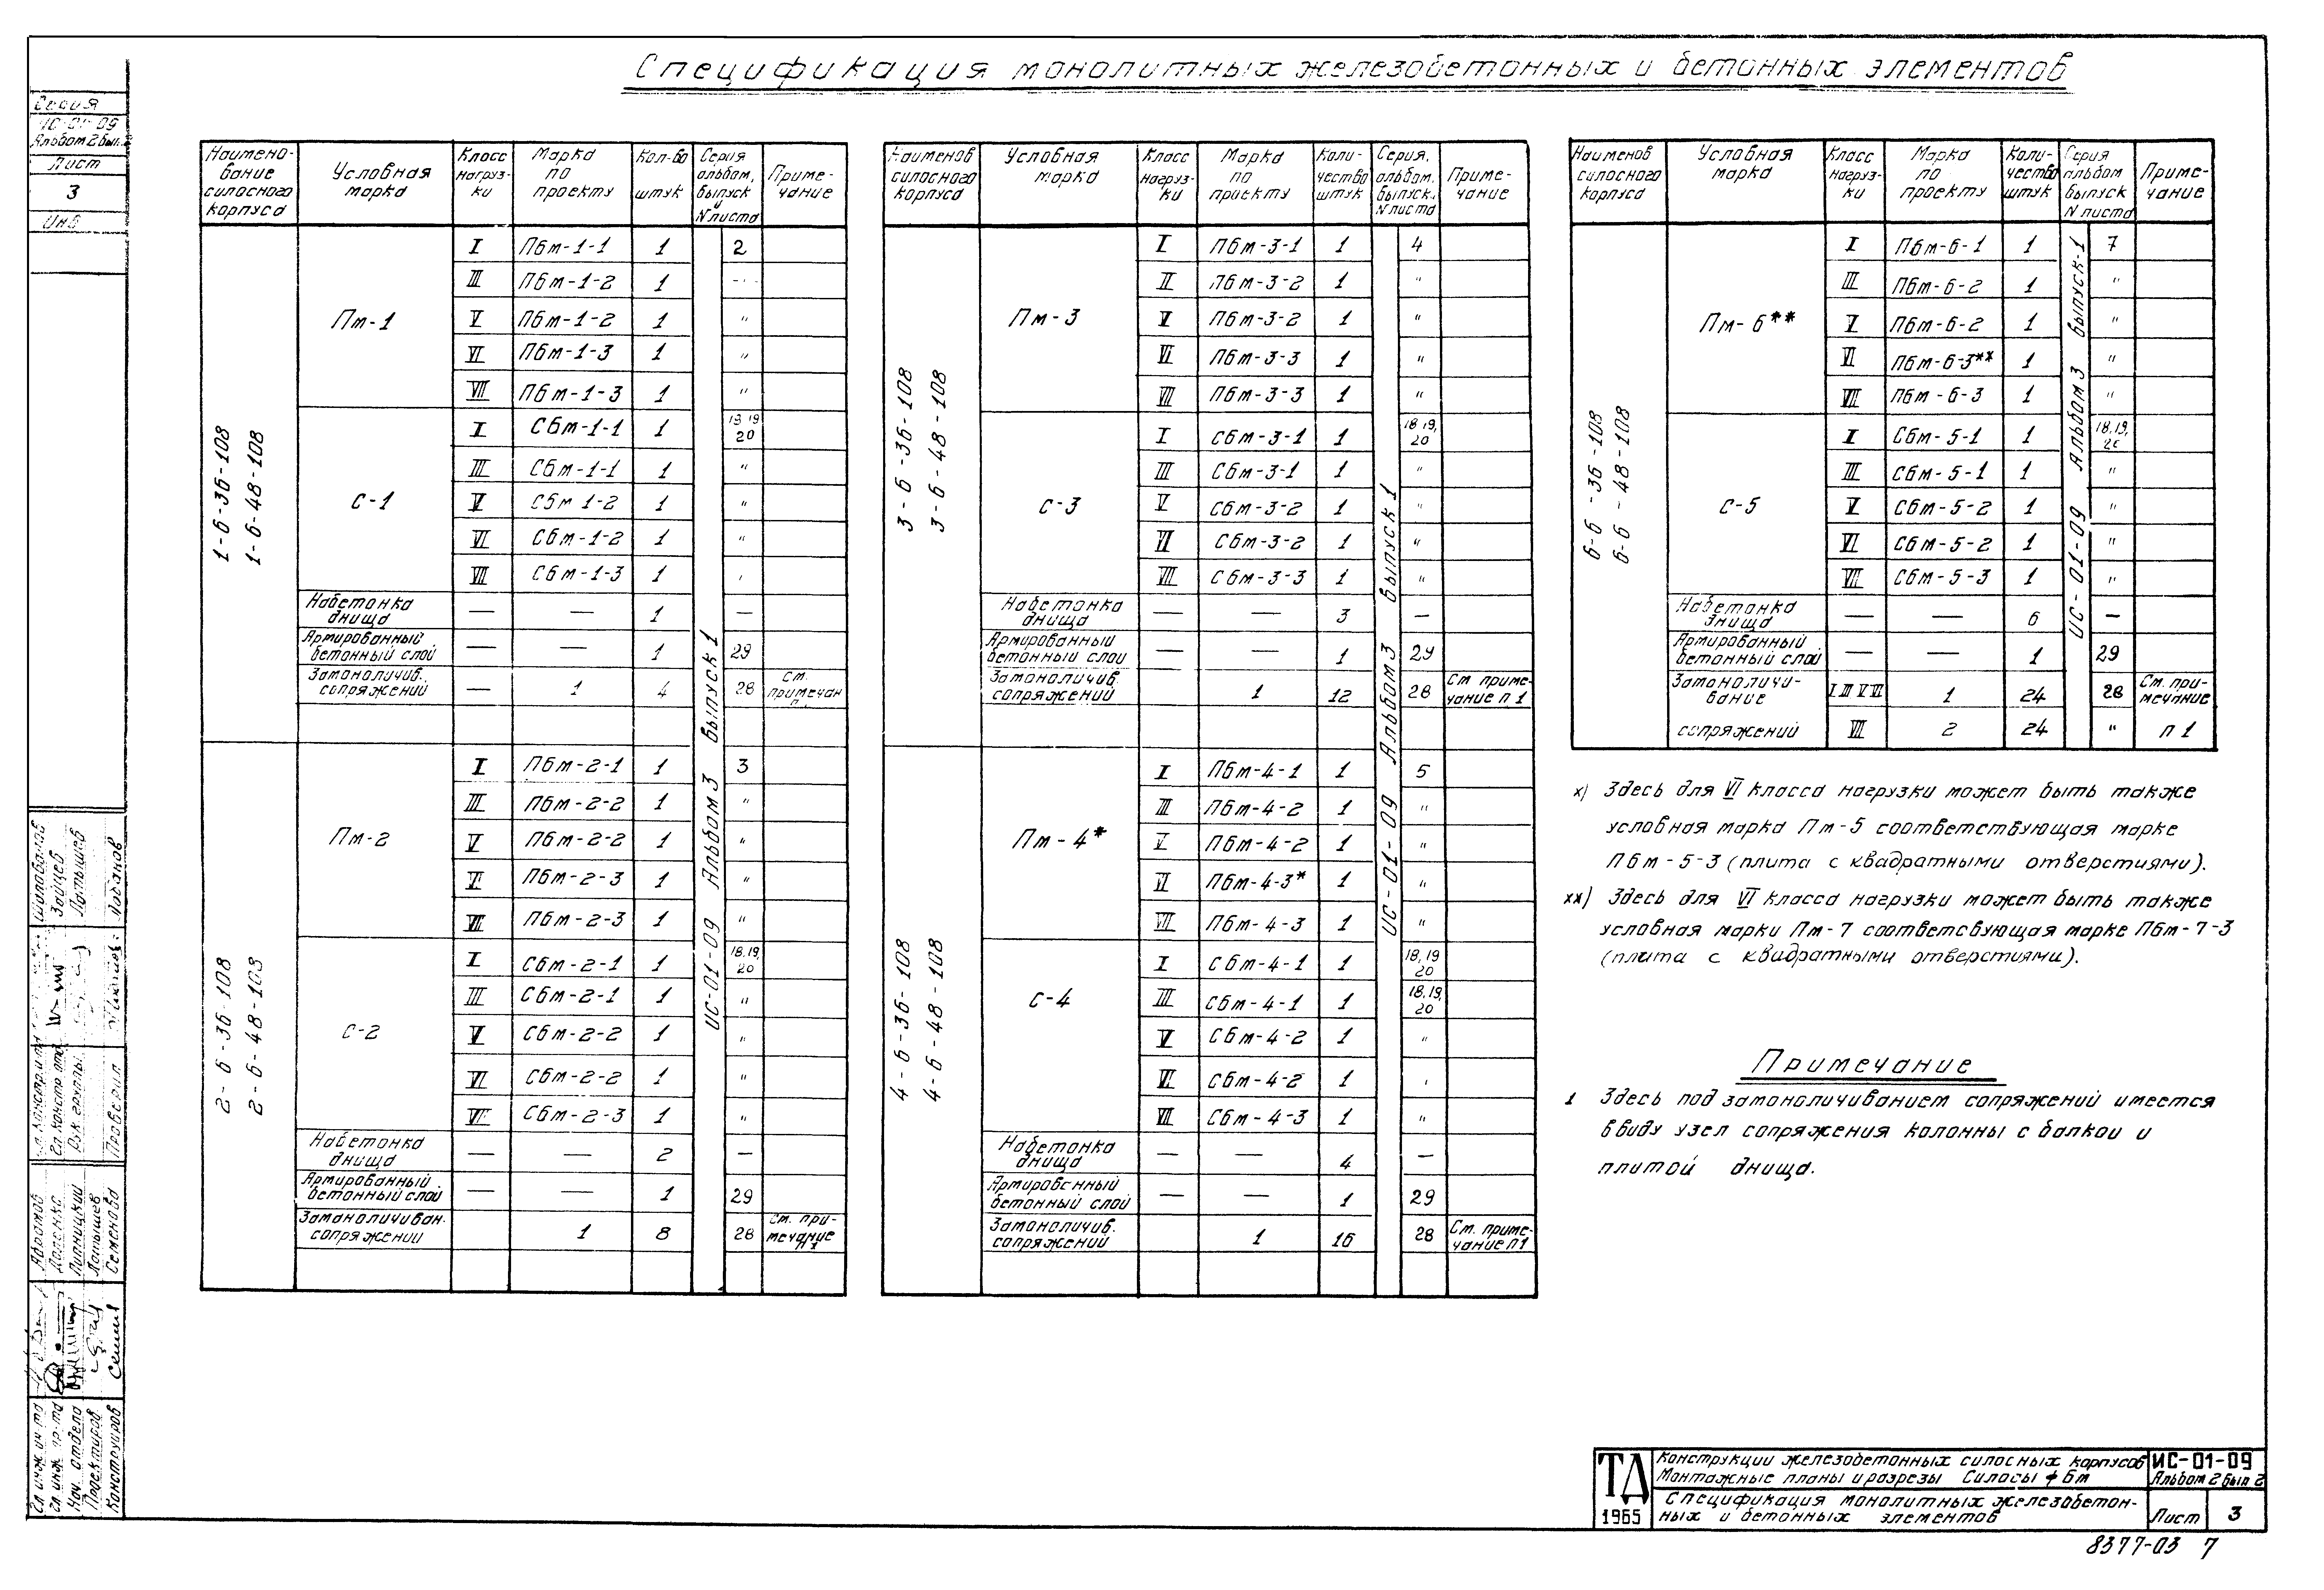 Спецификация монолитных железобетонных и бетонных элементов
Серия
ИС-01-09
Альбом 2 вып. 2
Лист
3
Инв
Наимено-вание силосного корпуса | Условная марка | Класс нагруз-ки | Марка по проекту | Кол-во штук | Серия альбом, выпуск и N листа | Приме-чание
1-6-36-108
1-6-48-108
ИС-01-09 Альбом 3 Выпуск 1
Пм-1 | I | П6м-1-1 | 1 | 2
III | П6м-1-2 | 1 | "
V | П6м-1-2 | 1 | "
VI | П6м-1-3 | 1 | "
VII | П6м-1-3 | 1 | "
С-1 | I | С6м-1-1 | 1 | 18,19 20
III | С6м-1-1 | 1 | "
V | С6м 1-2 | 1 | "
VI | С6м-1-2 | 1 | "
VII | С6м-1-3 | 1 | "
Набетонка днища | — | — | 1 | —
Армированный бетонный слой | — | — | 1 | 29
Замоноличив. сопряжений | — | 1 | 4 | 28 | См. примечан п
2-6-36-108
2-6-48-108
Пм-2 | I | П6м-2-1 | 1 | 3
III | П6м-2-2 | 1 | "
V | П6м-2-2 | 1 | "
VI | П6м-2-3 | 1 | "
VII | П6м-2-3 | 1 | "
С-2 | I | С6м-2-1 | 1 | 18,19, 20
III | С6м-2-1 | 1 | "
V | С6м-2-2 | 1 | "
VI | С6м-2-2 | 1 | "
VII | С6м-2-3 | 1 | "
Набетонка днища | — | — | 2 | —
Армированный бетонный слой | — | — | 1 | 29
Замоноличиван. сопряжений | 1 | 8 | 28 | См. при-мечание п 1
Наименов силосного корпуса | Условная марка | Класс нагруз-ки | Марка по проекту | Коли-чество штук | Серия, альбом, выпуск, N листа | Приме-чание
3-6-36-108
3-6-48-108
ИС-01-09 Альбом 3 Выпуск 1
Пм-3 | I | П6м-3-1 | 1 | 4
II | П6м-3-2 | 1 | "
V | П6м-3-2 | 1 | "
VI | П6м-3-3 | 1 | "
VII | П6м-3-3 | 1 | "
С-3 | I | С6м-3-1 | 1 | 18 19, 20
III | С6м-3-1 | 1 | "
V | С6м-3-2 | 1 | "
VI | С6м-3-2 | 1 | "
VII | С6м-3-3 | 1 | "
Набетонка днища | — | — | 3 | —
Армированный бетонный слой | — | — | 1 | 29
Замоноличив. сопряжений | 1 | 12 | 28 | См приме-чание п 1
4-6-36-108
4-6-48-108
Пм-4* | I | П6м-4-1 | 1 | 5
III | П6м-4-2 | 1 | "
V | П6м-4-2 | 1 | "
VI | П6м-4-3* | 1 | "
VII | П6м-4-3 | 1 | "
С-4 | I | С6м-4-1 | 1 | 18,19 20
III | С6м-4-1 | 1 | 18,19, 20
V | С6м-4-2 | 1 | "
VI | С6м-4-2 | 1 | "
VII | С6м-4-3 | 1 | "
Набетонка днища | — | — | 4 | —
Армированный бетонный слой | — | — | 1 | 29
Замоноличив. сопряжений | 1 | 16 | 28 | См. приме-чание п 1
Наименов силосного корпуса | Условная марка | Класс нагруз-ки | Марка по проекту | Коли-чество штук | Серия альбом выпуск N листа | Приме-чание
6-6-36-108
6-6-48-108
ИС-01-09 Альбом 3 Выпуск-1
Пм-6** | I | П6м-6-1 | 1 | 7
III | П6м-6-2 | 1 | "
V | П6м-6-2 | 1 | "
VI | П6м-6-3** | 1 | "
VII | П6м-6-3 | 1 | "
С-5 | I | С6м-5-1 | 1 | 18,19, 20
III | С6м-5-1 | 1 | "
V | С6м-5-2 | 1 | "
VI | С6м-5-2 | 1 | "
VII | С6м-5-3 | 1 | "
Набетонка днища | — | — | 6 | —
Армированный бетонный слой | — | — | 1 | 29
Замоноличи-вание | I III V VI | 1 | 24 | 28 | См. при-мечание
сопряжений | VII | 2 | 24 | " | п 1
х) Здесь для VI класса нагрузки может быть также
условная марка Пм-5 соответствующая марке
П6м-5-3 (плита с квадратными отверстиями).
хх) Здесь для VI класса нагрузки может быть также
условная марки Пм-7 соответсвующая марке П6м-7-3
(плита с квадратными отверстиями).
Примечание
1 Здесь под замоноличиванием сопряжений имеется
ввиду узел сопряжения колонны с балкой и
плитой днища.
Зайцев
Латышев
Гл. констр. отд.
Рук. группы
Проверил
Липницкий
Латышев
Семенова
Нач. отдела
Проектиров
Конструиров
ТД
1965
Конструкции железобетонных силосных корпусов
Монтажные планы и разрезы Силосы ф 6м
Спецификация монолитных железобетон-
ных и бетонных элементов
ИС-01-09
Альбом 2 вып 2
Лист 3
8377-03 7